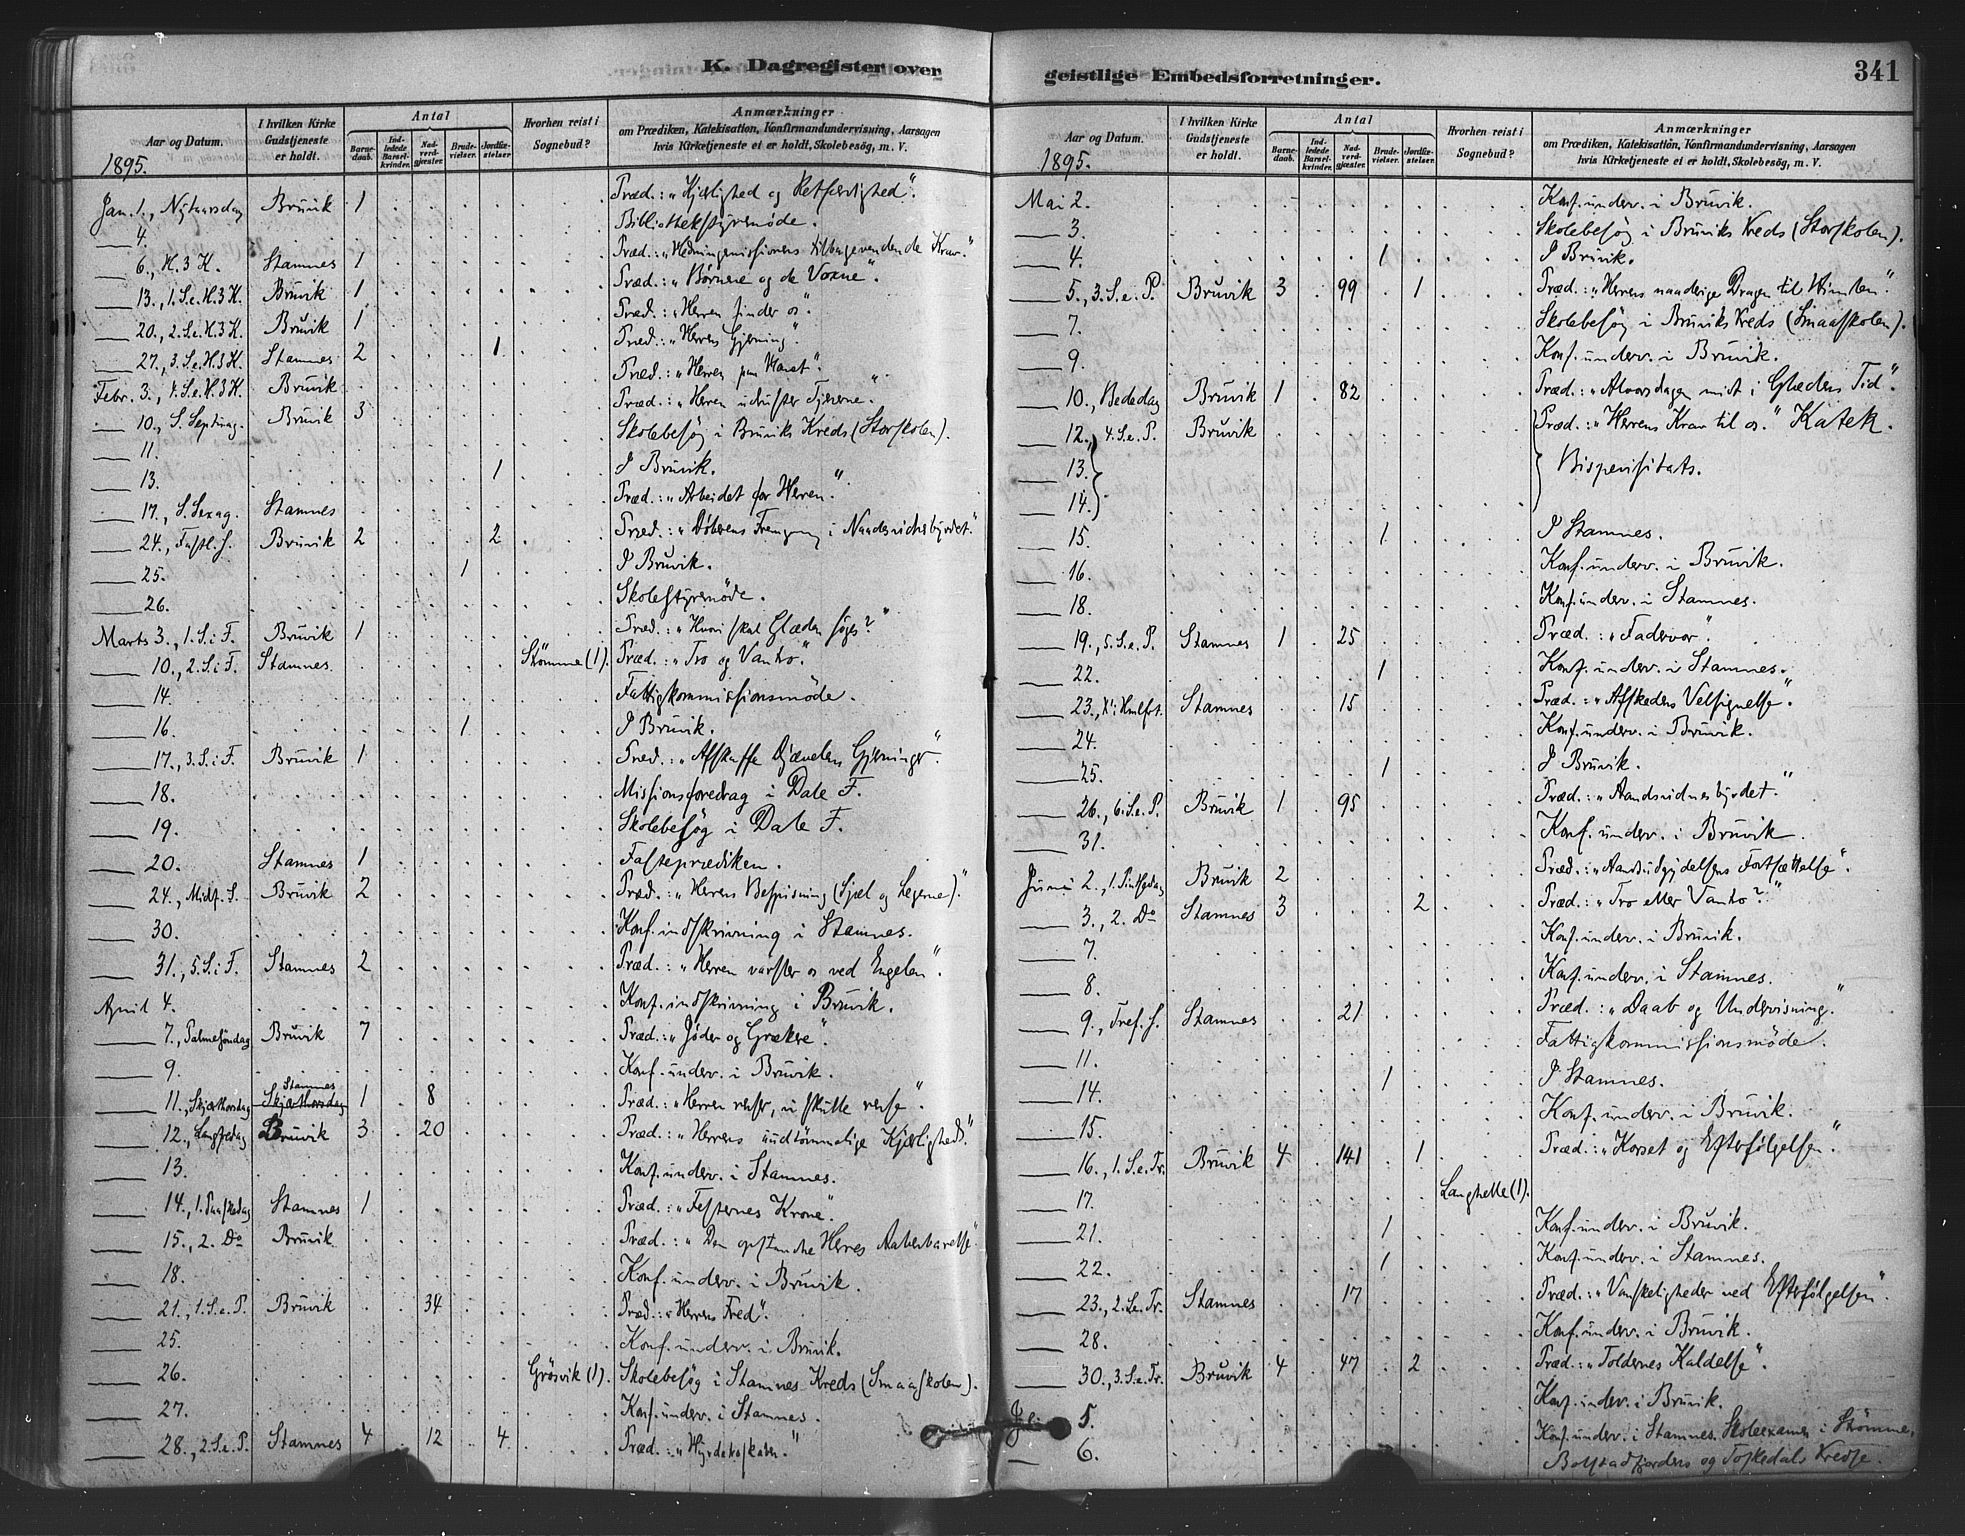 K. Dagregister over geistlige Embedsforretninger. 341
Aar og Datum. I hvilken Kirke Gudstjeneste er holdt. Antal Barnedaab. Indledede Barselkvinder. Nadverdgjæster. Brudevielser. Jordfæstelser. Hvorhen reist i Sognebud? Anmærkninger om Prædiken, Katekisation, Konfirmandundervisning, Aarsagen hvis Kirketjeneste et er holdt, Skolebesøg, m. V.
1895.
Jan. 1., Nytaarsdag Bruvik 1 Præd.: "Kjærlighed og Retfærdighed".
4. Bibliothekstyremøde.
6., H.3K. Stamnes 1 Præd.: "Hedningemissionens tilbagevendende Krav."
13., 1.S.e.H.3K. Bruvik 1 Præd.: "Børnene og de Voxne".
20., 2.S.e.H.3K. Bruvik 1 Præd.: "Herren finder os".
27., 3.S.e.H.3K. Stamnes 2 1 Præd.: "Herrens Gjerning".
Febr. 3., 4.S.e.H.3K. Bruvik Præd.: "Herren paa Havet".
10., S. Septuag. Bruvik 3 Præd.: "Herren udruster Tjenerne".
11. Skolebesøg i Bruviks Kreds (Storskolen).
13. 1 I Bruvik.
17., S. Sexag. Stamnes Præd.: "Arbeidet for Herren".
24., Fastl. S. Bruvik 2 2 Præd.: "Døberens Fremgang i Naadesvidnesbyrdet."
25. 1 I Bruvik.
26. Skolestyremøde.
Marts 3., 1.S.i F. Bruvik 1 Præd.: "Hvori skal Glæden søges?"
10., 2.S.i F. Stamnes Stømme (1). Præd.: "Tro og Vantro".
14. Fattigkommissionsmøde.
16. 1 I Bruvik.
17., 3.S.i F. Bruvik 1 Præd.: "Afskaffe Djævelens Gjerninger".
18. Missionsforedrag i Dale F.
19. Skolebesøg i Dale F.
20. Stamnes 1 Fasteprædiken.
24., Midf. S. Bruvik 2 Præd.: "Herrens Bespisning (Sjæl og Legeme)."
30. Konf.indskrivning i Stamnes.
31., 5.S.i F. Stamnes 2 Præd.: "Herren varsler os ved Engelen".
April 4. Konf.indskrivning i Bruvik.
7., Palmesøndag Bruvik 7 Præd.: "Jøder og Grækere".
9. Konf.underv. i Bruvik.
11., Skjærthorsdag Stamnes 1 8 Præd.: "Herren renser, vi skulle rense".
12., Langfredag Bruvik 3 20 Præd.: "Herrens uudtømmelige Kjærlighed."
13. Konf.underv. i Stamnes.
14., 1.Paaskedag Stamnes 1 Præd.: "Festernes Krone".
15., 2. Do Bruvik Præd.: "Den opstandne Herres Aabenbarelse"
18. Konf.underv. i Bruvik.
21., 1.S.e.P. Bruvik 34 Præd.: "Herrens Fred".
25. Konf.underv. i Bruvik.
26. Grøsvik (1). Skolebesøg i Stamnes Kreds (Smaaskolen).
27. Konf.underv. i Stamnes.
28., 2.S.e.P. Stamnes 4 12 4 Præd.: "Hyrdeløskaben."
Aar og Datum. I hvilken Kirke Gudstjeneste er holdt. Antal Barnedaab. Indledede Barselkvinder. Nadverdgjæster. Brudevielser. Jordfæstelser. Hvorhen reist i Sognebud? Anmærkninger om Prædiken, Katekisation, Konfirmandundervisning, Aarsagen hvis Kirketjeneste et er holdt, Skolebesøg, m. V.
1895.
Mai 2. Konf.underv. i Bruvik.
3. Skolebesøg i Bruviks Kreds (Storskolen).
4. 1 I Bruvik.
5., 3.S.e.P. Bruvik 3 99 1 Præd.: "Herrens naaderige Dragen til Himlen".
7. Skolebesøg i Bruviks Kreds (Smaaskolen).
9. Konf.underv. i Bruvik.
10., Bededag Bruvik 1 82 Præd.: "Alvorsdagen midt i Glædens Tid".
12., 4.S.e.P. Bruvik Præd.: "Herrens Krav til os". Katek.
13. Bispevisitats.
14.
15. 1 I Stamnes.
16. Konf.underv. i Bruvik.
18. Konf.underv. i Stamnes.
19., 5.S.e.P. Stamnes 1 25 Præd.: "Fadervor".
22. 1 Konf.underv. i Stamnes.
23., X'i Hmlfrt. Stamnes 15 Præd.: "Afskedens Velsignelse".
24. Konf.underv. i Bruvik.
25. 1 I Bruvik.
26., 6.S.e.P. Bruvik 1 95 Præd.: "Aandsvidnesbyrdet."
31. Konf.underv. i Bruvik.
Juni 2., 1.Pintsedag Bruvik 2 Præd.: "Aandsudgydelsens Fortsættelse".
3., 2. Do Stamnes 3 2 Præd.: "Tro eller Vantro?"
7. Konf.underv. i Bruvik.
8. Konf.underv. i Stamnes.
9., Tref. S. Stamnes 21 Præd.: "Daab og Undervisning".
11. Fattigkommissionsmøde.
14. 1 I Stamnes.
15. Konf.underv. i Bruvik.
16., 1.S.e.Tr. Bruvik 4 141 1 Præd.: "Korset og Efterfølgelsen".
17. Langhelle (1).
21. 1 Konf.underv. i Bruvik.
22. 1 Konf.underv. i Stamnes.
23., 2.S.e.Tr. Stamnes 17 Præd.: "Vanskeligheder ved Efterfølgelsen".
28. Konf.underv. i Bruvik.
30., 3.S.e.Tr. Bruvik 4 47 2 Præd.: "Toldernes Kaldelse".
Juli 5. Konf.underv. i Bruvik.
6. Konf.underv. i Stamnes. Skoleexamen i Stømme,
Bolstadfjordens og Toskedals Kredse.